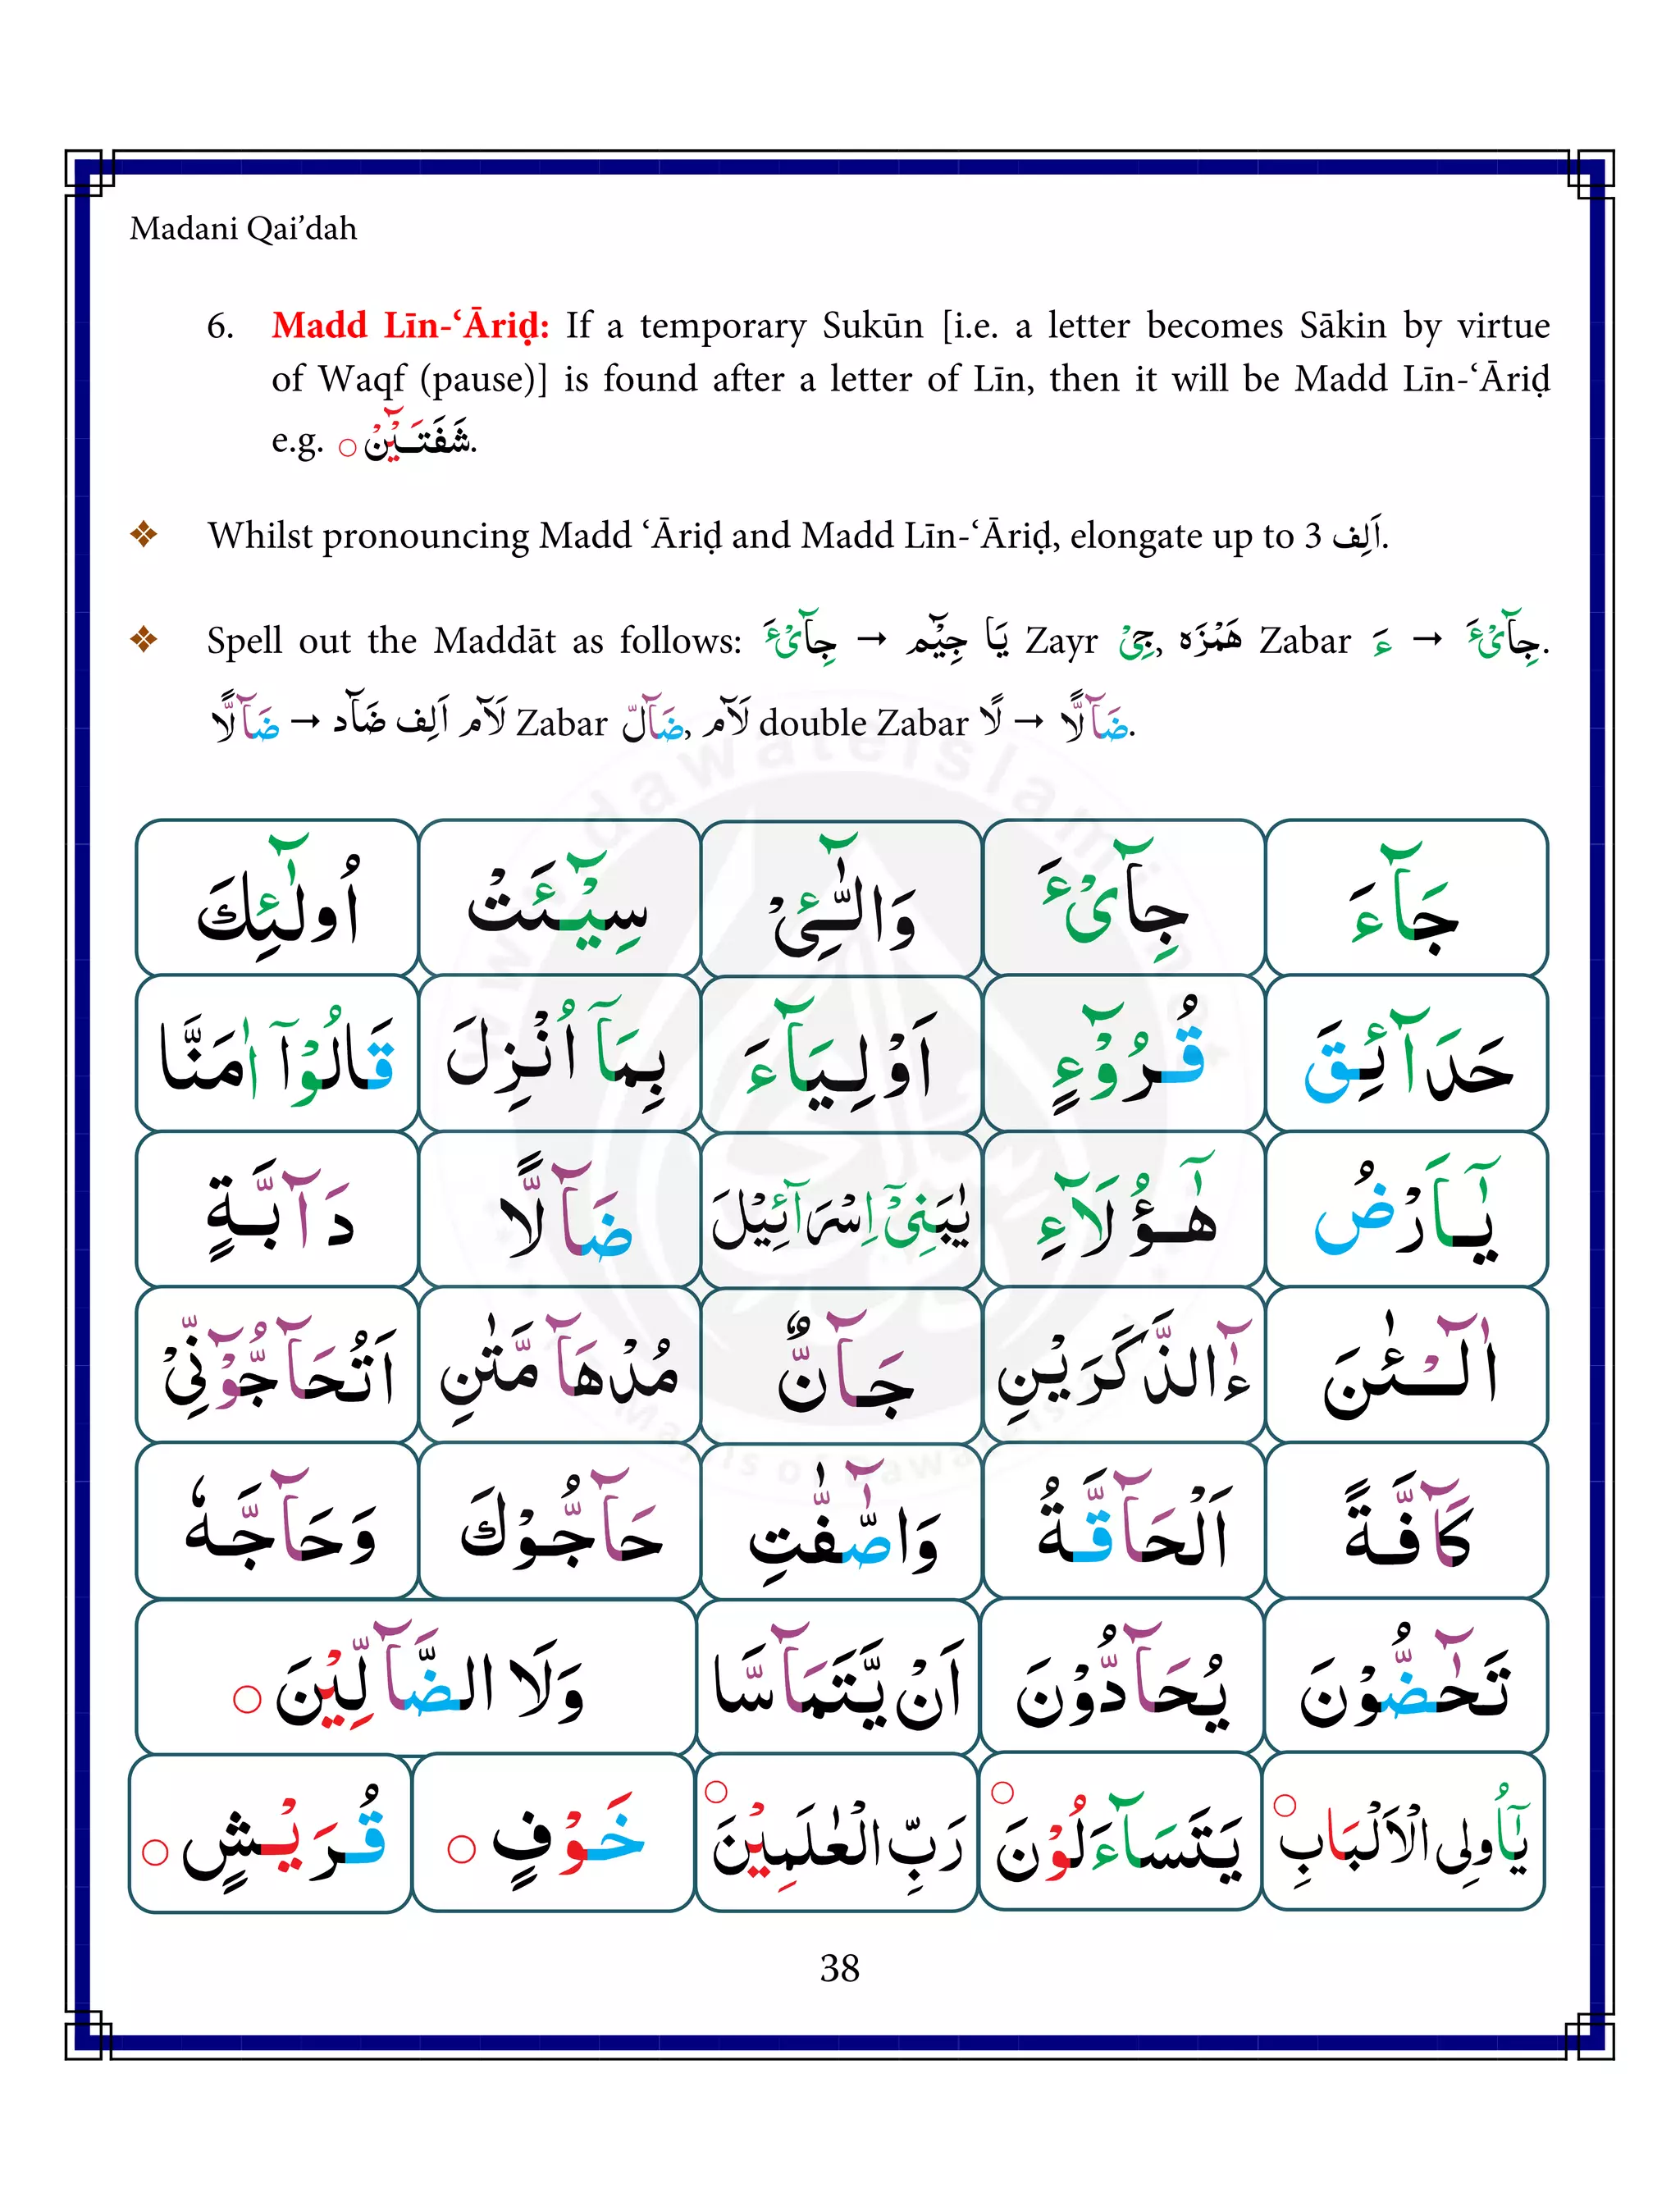 Madani Qai’dah
6. Madd Līn-‘Āriḍ: If a temporary Sukūn [i.e. a letter becomes Sākin by virtue
of Waqf (pause)] is found after a letter of Līn, then it will be Madd Līn-‘Āriḍ
e.g. شَفَتَـيْنْۤ ○.
❖ Whilst pronouncing Madd ‘Āriḍ and Madd Līn-‘Āriḍ, elongate up to 3 اَلِف.
❖ Spell out the Maddāt as follows: جِآیْٓءَ → جِیْٓمْ یَا Zayr جِیْ, هَمْزَہ Zabar ءَ → جِآیْٓءَ.
ضَآلًّا → ضَآد اَلِف لَآم Zabar ضَآلّ, لَآم double Zabar لًا → ضَآلًّا.
جَآءَ جِآیْٓءَ وَالّٰٓـِٔیْ سِیْٓـَٔتْ اُولٰٓئِكَ
حَدَآئِقَ قُرُوْٓءٍ اَوْلِیَآءَ بِمَاۤ اُنْزِلَ قَالُوْۤا اٰمَنَّا
یٰۤاَرْضُ هٰۤؤُلَآءِ یٰبَنِیْۤ اِسْرَآئِیْلَ ضَآلًّا دَآبَّةٍ
آٰلْـٰٔنَ ءٰٓالذَّكَرَیْنِ جَآنٌّ مُدْهَآ مَّتٰنِ اَتُحَآجُّوْٓنِّیْ
كَآفَّةً اَلْحَآقَّةُ وَالصّٰٓفّٰتِ حَآجُّوْكَ وَحَآجَّهٗ
تَحٰٓضُّوْنَ یُحَآدُّوْنَ اَنْ یَّتَمَآسَّا وَلَا الضَّآلِّیْنَ ○
یٰۤاُولِی الْاَلْبَابِ ○ یَتَسَآءَلُوْنَ ○ رَبِّ الْعٰلَمِیْنَ ○ خَوْفٍ ○ قُرَیْشٍ ○
38